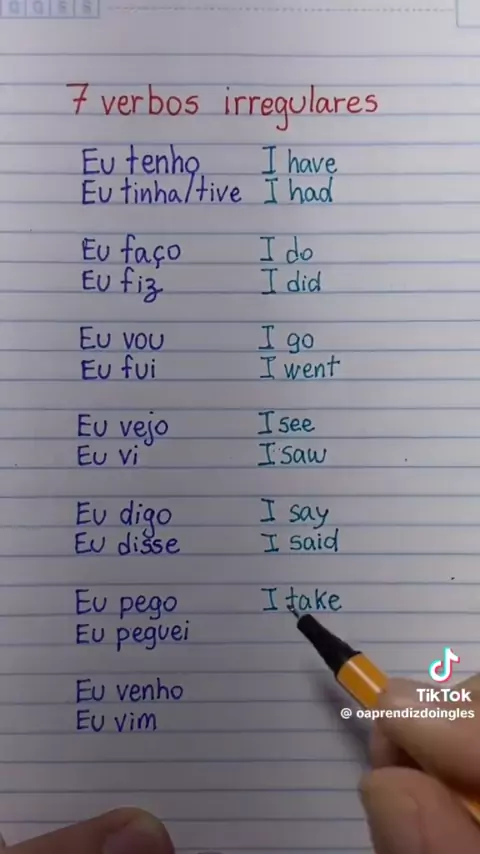 7 verbos irregulares
Eu tenho I have
Eu tinha/tive I had
Eu faço I do
Eu fiz I did
Eu vou I go
Eu fui I went
Eu vejo I see
Eu vi I saw
Eu digo I say
Eu disse I said
Eu pego I take
Eu peguei
Eu venho
Eu vim
TikTok
@ oaprendizdoingles